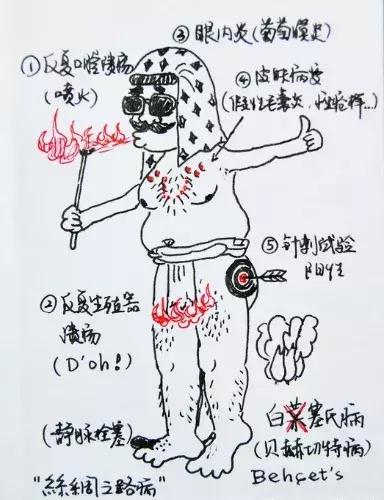 ③ 眼内炎(葡萄膜炎)
① 反复口腔溃疡
(喷火)
④ 皮肤病变
(假性毛囊炎, 痤疮样..)
⑤ 针刺试验
阳性
② 反复生殖器
溃疡
(D'oh!)
(静脉栓塞)
白菜塞氏病
(贝赫切特病)
Behçet's
"絲绸之路病"